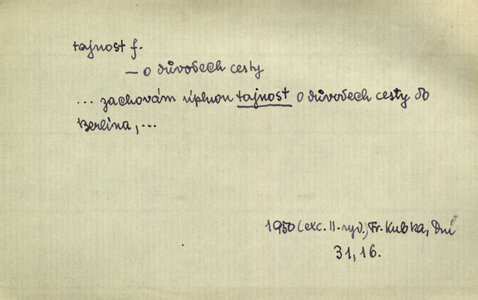 tajnost f.
— o důvodech cesty
... zachovám úplnou tajnost o důvodech cesty do
Berlína, ...
1950 (exc. II. vyd.) Fr. Kubka, Dní
31, 16.